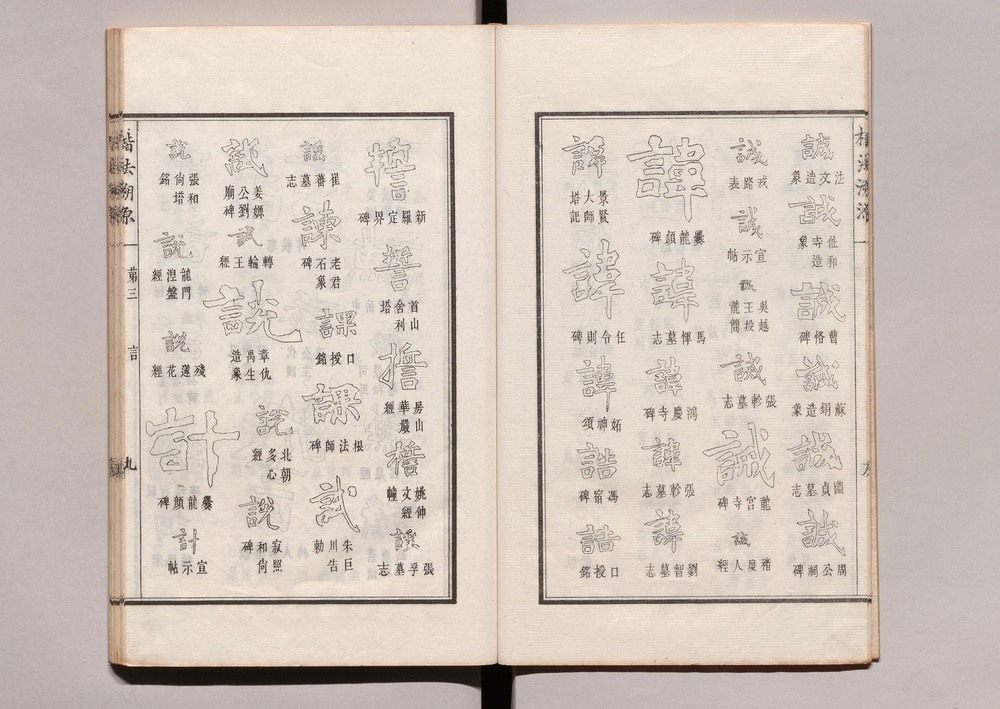 誠
法文造象
誠
仕和寺造象
誠
曹恪碑
誠
蘇絹造象
誠
貞墓志
誠
周公祠碑
誡
戎路表
誡
宣示帖
誡
吳越王投龍簡
誡
張軫墓志
誡
龍宮寺碑
誡
度人經
諱
爨龍顏碑
諱
馬惲墓志
諱
鴻慶寺碑
諱
張軫墓志
諱
劉智墓志
諱
景賢大師塔記
諱
任令則碑
諱
妬神頌
誥
馮宿碑
誥
口授銘
誓
新羅定界碑
誓
首山舍利塔
房山華嚴經
姚伸文經幢
張孚墓志
崔蕃墓志
諫
老君石象碑
課
口授銘
課
根法師碑
試
朱巨川告勅
試
姜嫄公劉廟碑
試
轉輪王經
說
章仇禹生造象
說
北朝多心經
說
寂照和尚碑
說
張和尚塔銘
說
龍門涅盤經
說
殘蓮花經
計
爨龍顏碑
計
宣示帖
楷法溯源
第三
言
九